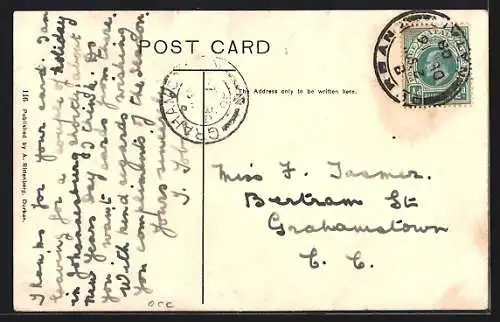 POST CARD
The Address only to be written here.
Miss F. Tasmer
Bertram St
Grahamstown
C. C.
Thanks for your card. I am
leaving for a couple of holiday
in Johannesburg shortly about
New Years day I think. Do
you want cards from there
With kind regards wishing
you compliments of the season.
Yours sincerely
J.
116 Published by A. Rittenberg, Durban.
GRAHAM
DURBAN
DE
occ